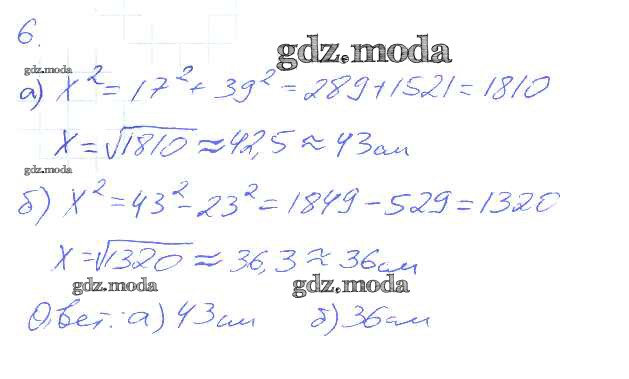 6.
gdz.moda
gdz.moda
а) x² = 17² + 39² = 289 + 1521 = 1810
x = √1810 ≈ 42,5 ≈ 43 см
gdz.moda
б) x² = 43² - 23² = 1849 - 529 = 1320
x = √1320 ≈ 36,3 ≈ 36 см
gdz.moda
gdz.moda
Ответ: а) 43 см б) 36 см